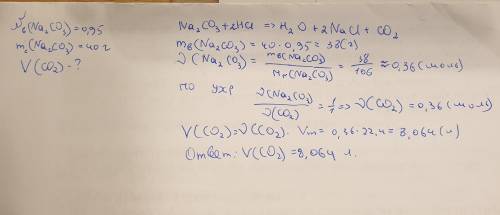 ω_в(Na₂CO₃)=0,95
m_с(Na₂CO₃)=40 г
V(CO₂)-?
Na₂CO₃+2HCl => H₂O + 2NaCl + CO₂
m_в(Na₂CO₃) = 40·0,95 = 38(г)
ν(Na₂CO₃) = m_в(Na₂CO₃)/M_r(Na₂CO₃) = 38/106 ≈ 0,36(моль)
по ухр ν(Na₂CO₃)/ν(CO₂) = 1/1 => ν(CO₂) = 0,36(моль)
V(CO₂)=ν(CO₂)·Vm = 0,36·22,4 = 8,064(л)
Ответ: V(CO₂) = 8,064 л.